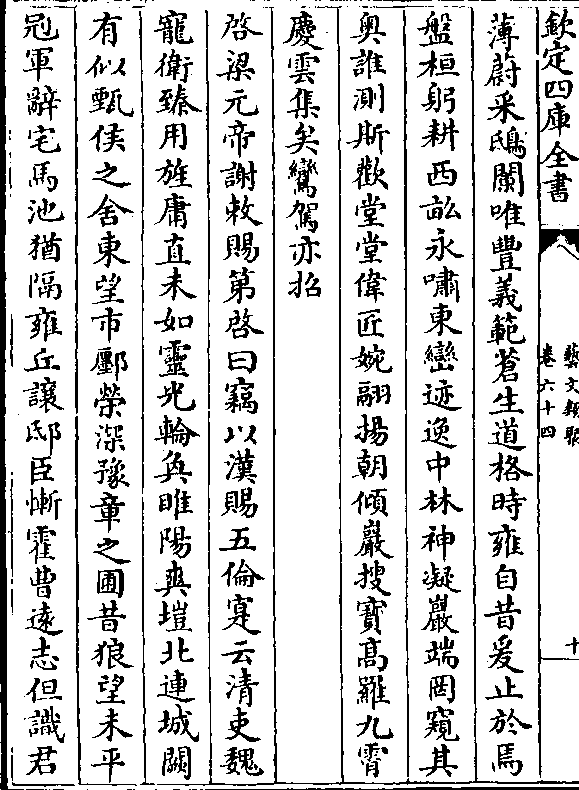 欽定四庫全書
藝文類聚
卷六十四
十
薄蔚采鴟闌唯豐義範蒼生道格時雍自昔爰止於焉
盤桓躬耕西畝永嘯東巒迹逸中林神凝巖端罔窺其
奥誰測斯歡堂堂偉匠婉翮揚朝傾巖搜寶髙羅九霄
慶雲集矣鸞駕亦招
啓梁元帝謝敕賜第啓曰竊以漢賜五倫寔云清吏魏
寵衛臻用旌庸直未如靈光輪奐睢陽爽塏北連城闕
有似甄侯之舍東望市酈榮深豫章之圃昔狼望未平
冠軍辭宅馬池猶隔雍丘讓邸臣慚霍曹逺志但識君